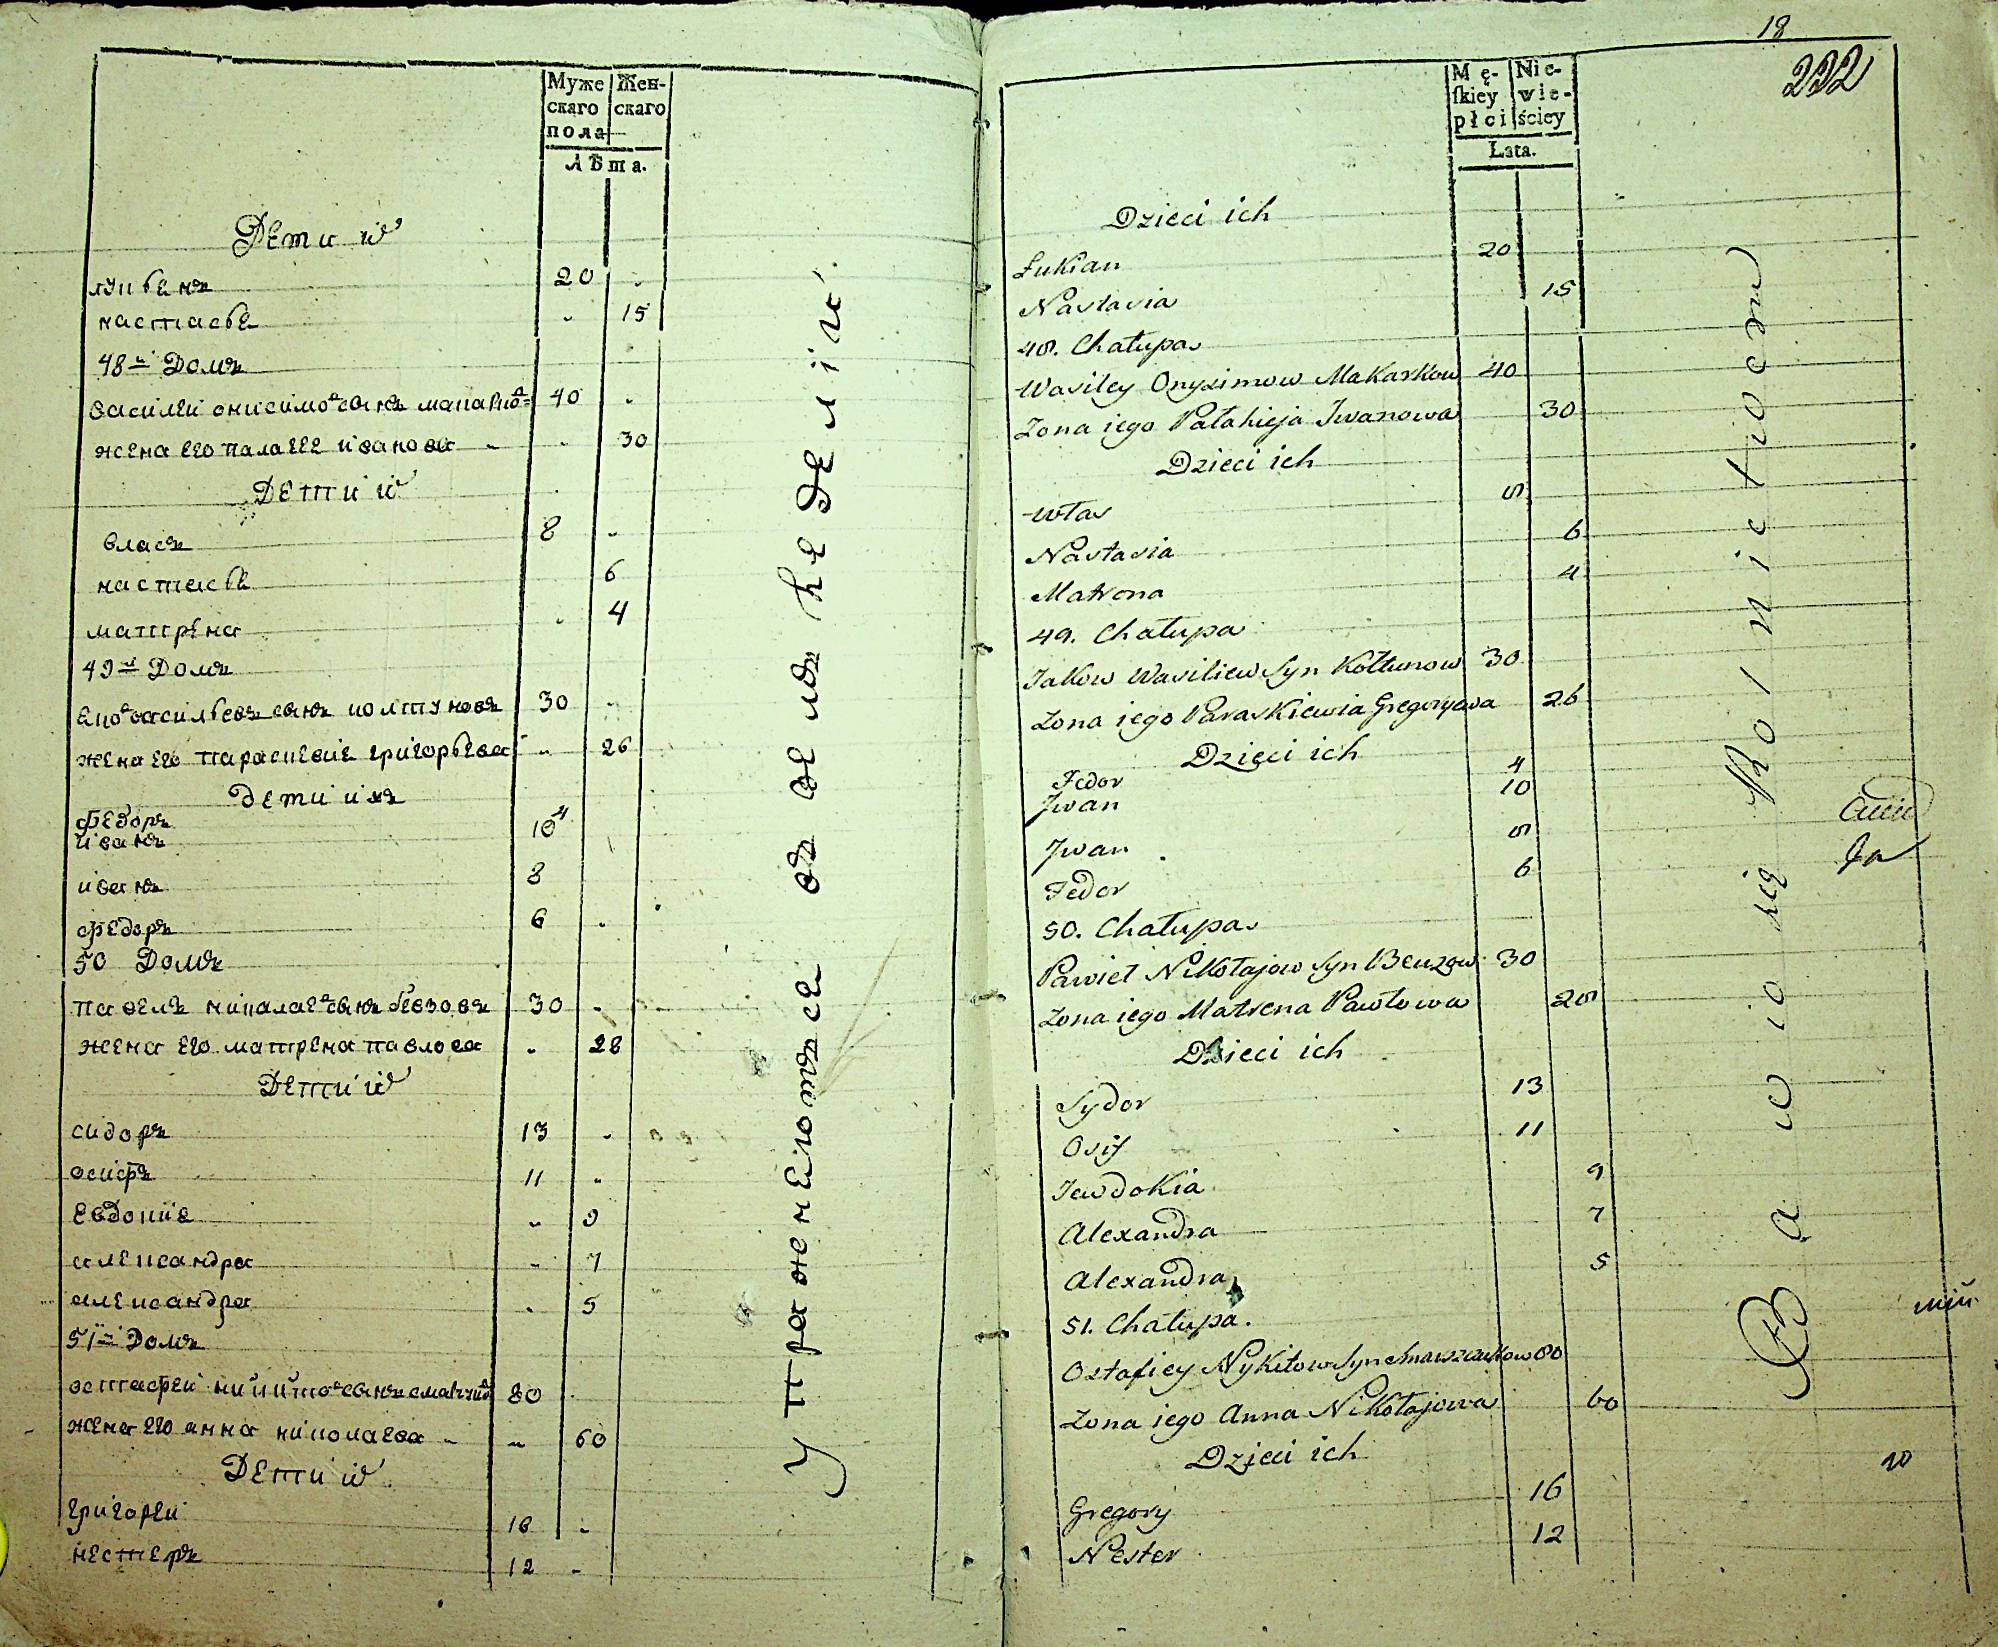 Муже
скаго
пола
Жен-
скаго
лѣта.
Дети их
лукьенъ 20
настасье 15
48й Домъ
василеи онисимовъ сынъ макарков 40
жена его палагее иванова 30
Дети их
власъ 8
настасье 6
матрена 4
49й Домъ
еков васильевъ сынъ колтуновъ 30
жена его параскевие григорьева 26
дети ихъ
федоръ 4
иванъ 10
иванъ 8
федоръ 6
50 Домъ
павелъ никалаев сынъ бевзовъ 30
жена его матрена павлова 28
Дети их
сидоръ 13
осифъ 11
евдокие 9
александра 7
александра 5
51й Домъ
остафеи никитов сынъ 80
жена его анна николаева 60
Дети их
григореи 16
нестеръ 12
Упражнеютъсе въ земъледелiи
18
222
Mę-
skiey
płci
Nie-
wie-
ściey
Lata.
Dzieci ich
Łukian 20
Nastasia 15
48. Chałupa
Wasiley Onyzimow Makarkow 40
Zona iego Pałahieja Jwanowa 30
Dzieci ich
Włas 8
Nastasia 6
Matrona 4
49. Chałupa
Jakow Wasiliew Syn Kołtunow 30
Zona iego Paraskiewia Gregoryewa 26
Dzieci ich
Fedor 4
Jwan 10
Jwan 8
Fedor 6
50. Chałupa
Pawieł Nikołajow Syn Bewzow 30
Zona iego Matrena Pawłowa 28
Dzieci ich
Sydor 13
Osif 11
Jewdokia 9
Alexandra 7
Alexandra 5
51. Chałupa.
Ostafiey Nykitow Syn 80
Zona iego Anna Nikołajowa 60
Dzieci ich
Gregory 16
Nester 12
Bawio się Rolnictwem